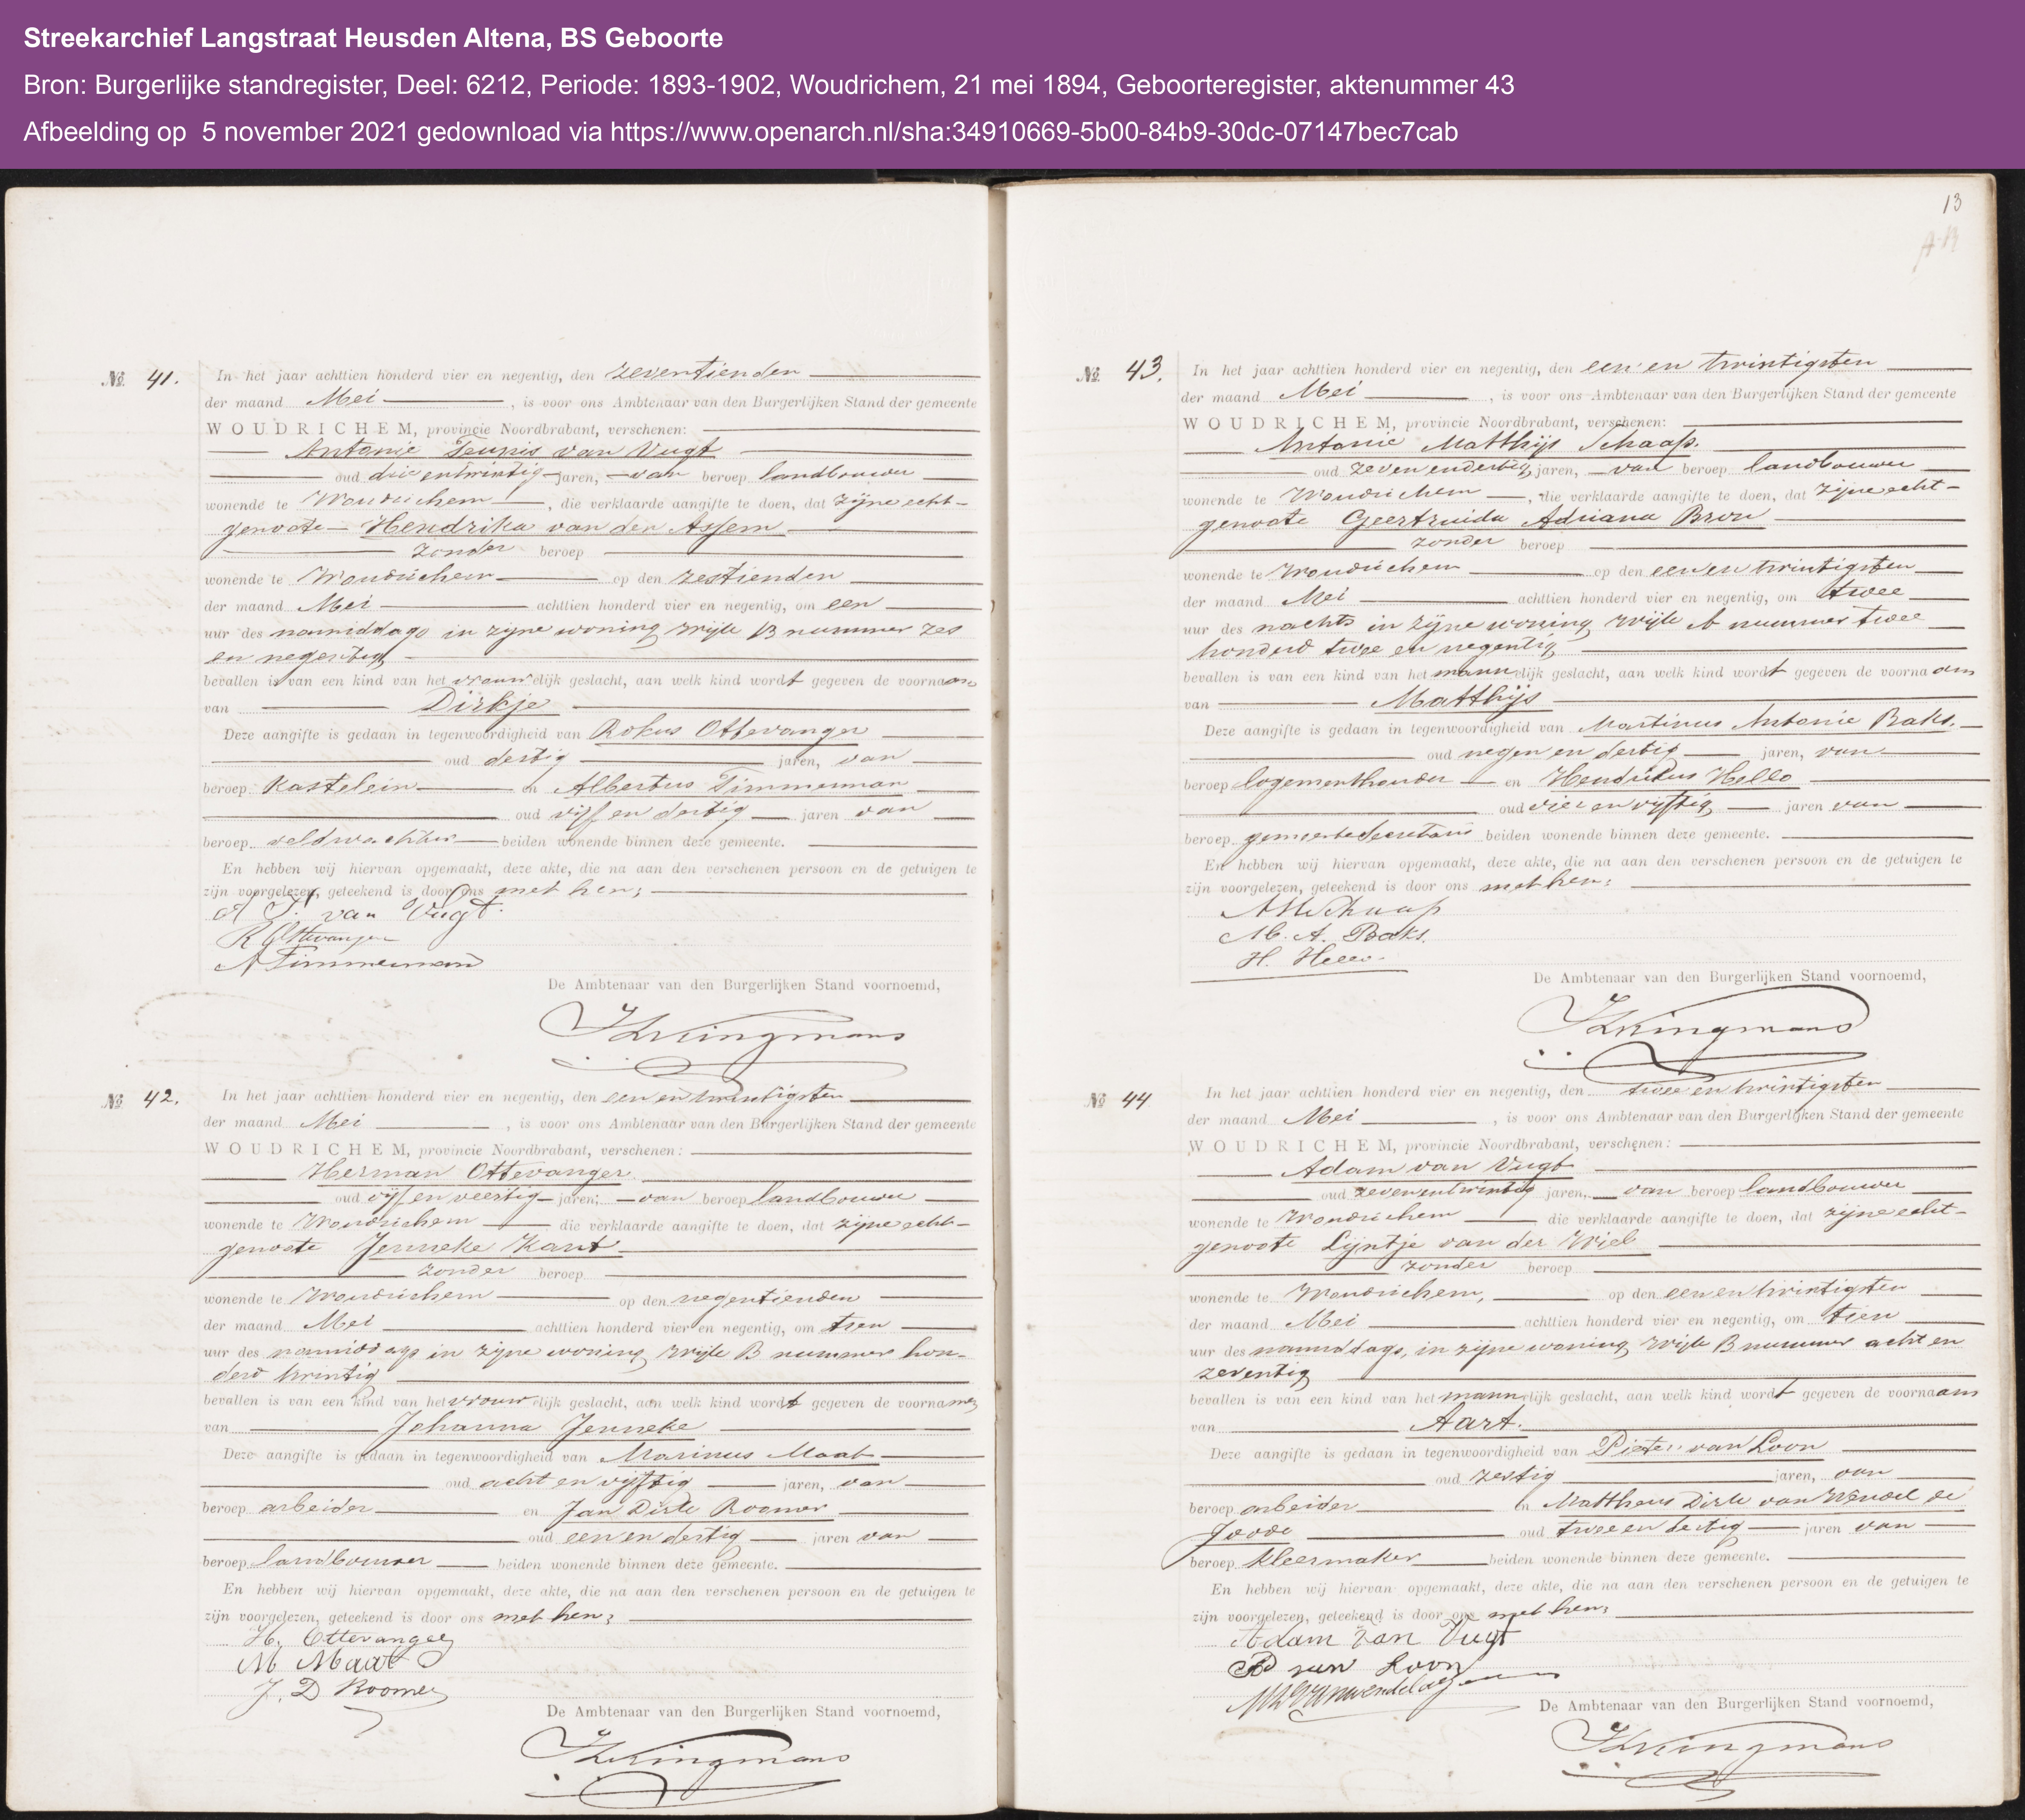 Streekarchief Langstraat Heusden Altena, BS Geboorte
Bron: Burgerlijke standregister, Deel: 6212, Periode: 1893-1902, Woudrichem, 21 mei 1894, Geboorteregister, aktenummer 43
Afbeelding op 5 november 2021 gedownload via https://www.openarch.nl/sha:34910669-5b00-84b9-30dc-07147bec7cab
No 41. In het jaar achttien honderd vier en negentig, den zeventienden
der maand Mei, is voor ons Ambtenaar van den Burgerlijken Stand der gemeente
WOUDRICHEM, provincie Noordbrabant, verschenen:
Antonie Teunis van Vugt
oud drie entwintig jaren, van beroep landbouwer
wonende te Woudrichem, die verklaarde aangifte te doen, dat zijne echt-
genoote Hendrika van den Assem
zonder beroep
wonende te Woudrichem op den zestienden
der maand Mei achttien honderd vier en negentig, om een
uur des namiddags in zijne woning wijk B nummer zes
en negentig
bevallen is van een kind van het vrouwelijk geslacht, aan welk kind wordt gegeven de voornaam
van Dirkje
Deze aangifte is gedaan in tegenwoordigheid van Rokus Ottevanger
oud dertig jaren, van
beroep Kastelein en Albertus Timmerman
oud vijf en dertig jaren van
beroep veldwachter beiden wonende binnen deze gemeente.
En hebben wij hiervan opgemaakt, deze akte, die na aan den verschenen persoon en de getuigen te
zijn voorgelezen, geteekend is door ons met hen;
A T. van Vugt.
R Ottevanger
A Timmerman
De Ambtenaar van den Burgerlijken Stand voornoemd,
No 42. In het jaar achttien honderd vier en negentig, den een en twintigsten
der maand Mei, is voor ons Ambtenaar van den Burgerlijken Stand der gemeente
WOUDRICHEM, provincie Noordbrabant, verschenen:
Herman Ottevanger
oud vijf en veertig jaren, van beroep landbouwer
wonende te Woudrichem die verklaarde aangifte te doen, dat zijne echt-
genoote Jenneke Kant
zonder beroep
wonende te Woudrichem op den negentienden
der maand Mei achttien honderd vier en negentig, om tien
uur des namiddags in zijne woning wijk B nummer hon-
derd twintig
bevallen is van een kind van het vrouwelijk geslacht, aan welk kind wordt gegeven de voornamen
van Johanna Jenneke
Deze aangifte is gedaan in tegenwoordigheid van Marinus Maat
oud acht en vijftig jaren, van
beroep arbeider en Jan Dirk Roomer
oud een en dertig jaren van
beroep landbouwer beiden wonende binnen deze gemeente.
En hebben wij hiervan opgemaakt, deze akte, die na aan den verschenen persoon en de getuigen te
zijn voorgelezen, geteekend is door ons met hen;
H. Ottevanger
M Maat
J. D Roomer
De Ambtenaar van den Burgerlijken Stand voornoemd,
13
No 43. In het jaar achttien honderd vier en negentig, den een en twintigsten
der maand Mei, is voor ons Ambtenaar van den Burgerlijken Stand der gemeente
WOUDRICHEM, provincie Noordbrabant, verschenen:
Antonie Matthijs Schaap.
oud zeven endertig jaren, van beroep landbouwer
wonende te Woudrichem, die verklaarde aangifte te doen, dat zijne echt-
genoote Geertruida Adriana Bron
zonder beroep
wonende te Woudrichem op den een en twintigsten
der maand Mei achttien honderd vier en negentig, om twee
uur des nachts in zijne woning wijk A nummer twee
honderd twee en negentig
bevallen is van een kind van het mannelijk geslacht, aan welk kind wordt gegeven de voornaam
van Matthijs
Deze aangifte is gedaan in tegenwoordigheid van Martinus Antonie Baks.
oud negen en dertig jaren, van
beroep logementhouder en Hendrikus Hello
oud vier en vijftig jaren van
beroep gemeentesecretaris beiden wonende binnen deze gemeente.
En hebben wij hiervan opgemaakt, deze akte, die na aan den verschenen persoon en de getuigen te
zijn voorgelezen, geteekend is door ons met hen;
AM Schaap
M. A. Baks.
H. Hello.
De Ambtenaar van den Burgerlijken Stand voornoemd,
No 44 In het jaar achttien honderd vier en negentig, den twee en twintigsten
der maand Mei, is voor ons Ambtenaar van den Burgerlijken Stand der gemeente
WOUDRICHEM, provincie Noordbrabant, verschenen:
Adam van Vugt
oud zeven entwintig jaren, van beroep landbouwer
wonende te Woudrichem die verklaarde aangifte te doen, dat zijne echt-
genoote Lijntje van der Wiel
zonder beroep
wonende te Woudrichem, op den een en twintigsten
der maand Mei achttien honderd vier en negentig, om tien
uur des namiddags, in zijne woning wijk B nummer acht en
zeventig
bevallen is van een kind van het mannelijk geslacht, aan welk kind wordt gegeven de voornaam
van Aart.
Deze aangifte is gedaan in tegenwoordigheid van Pieter van Loon
oud zestig jaren, van
beroep arbeider en Mattheus Dirk van Wendel de
Joode oud twee en dertig jaren van
beroep kleermaker beiden wonende binnen deze gemeente.
En hebben wij hiervan opgemaakt, deze akte, die na aan den verschenen persoon en de getuigen te
zijn voorgelezen, geteekend is door ons met hen;
Adam van Vugt
P van Loon
De Ambtenaar van den Burgerlijken Stand voornoemd,